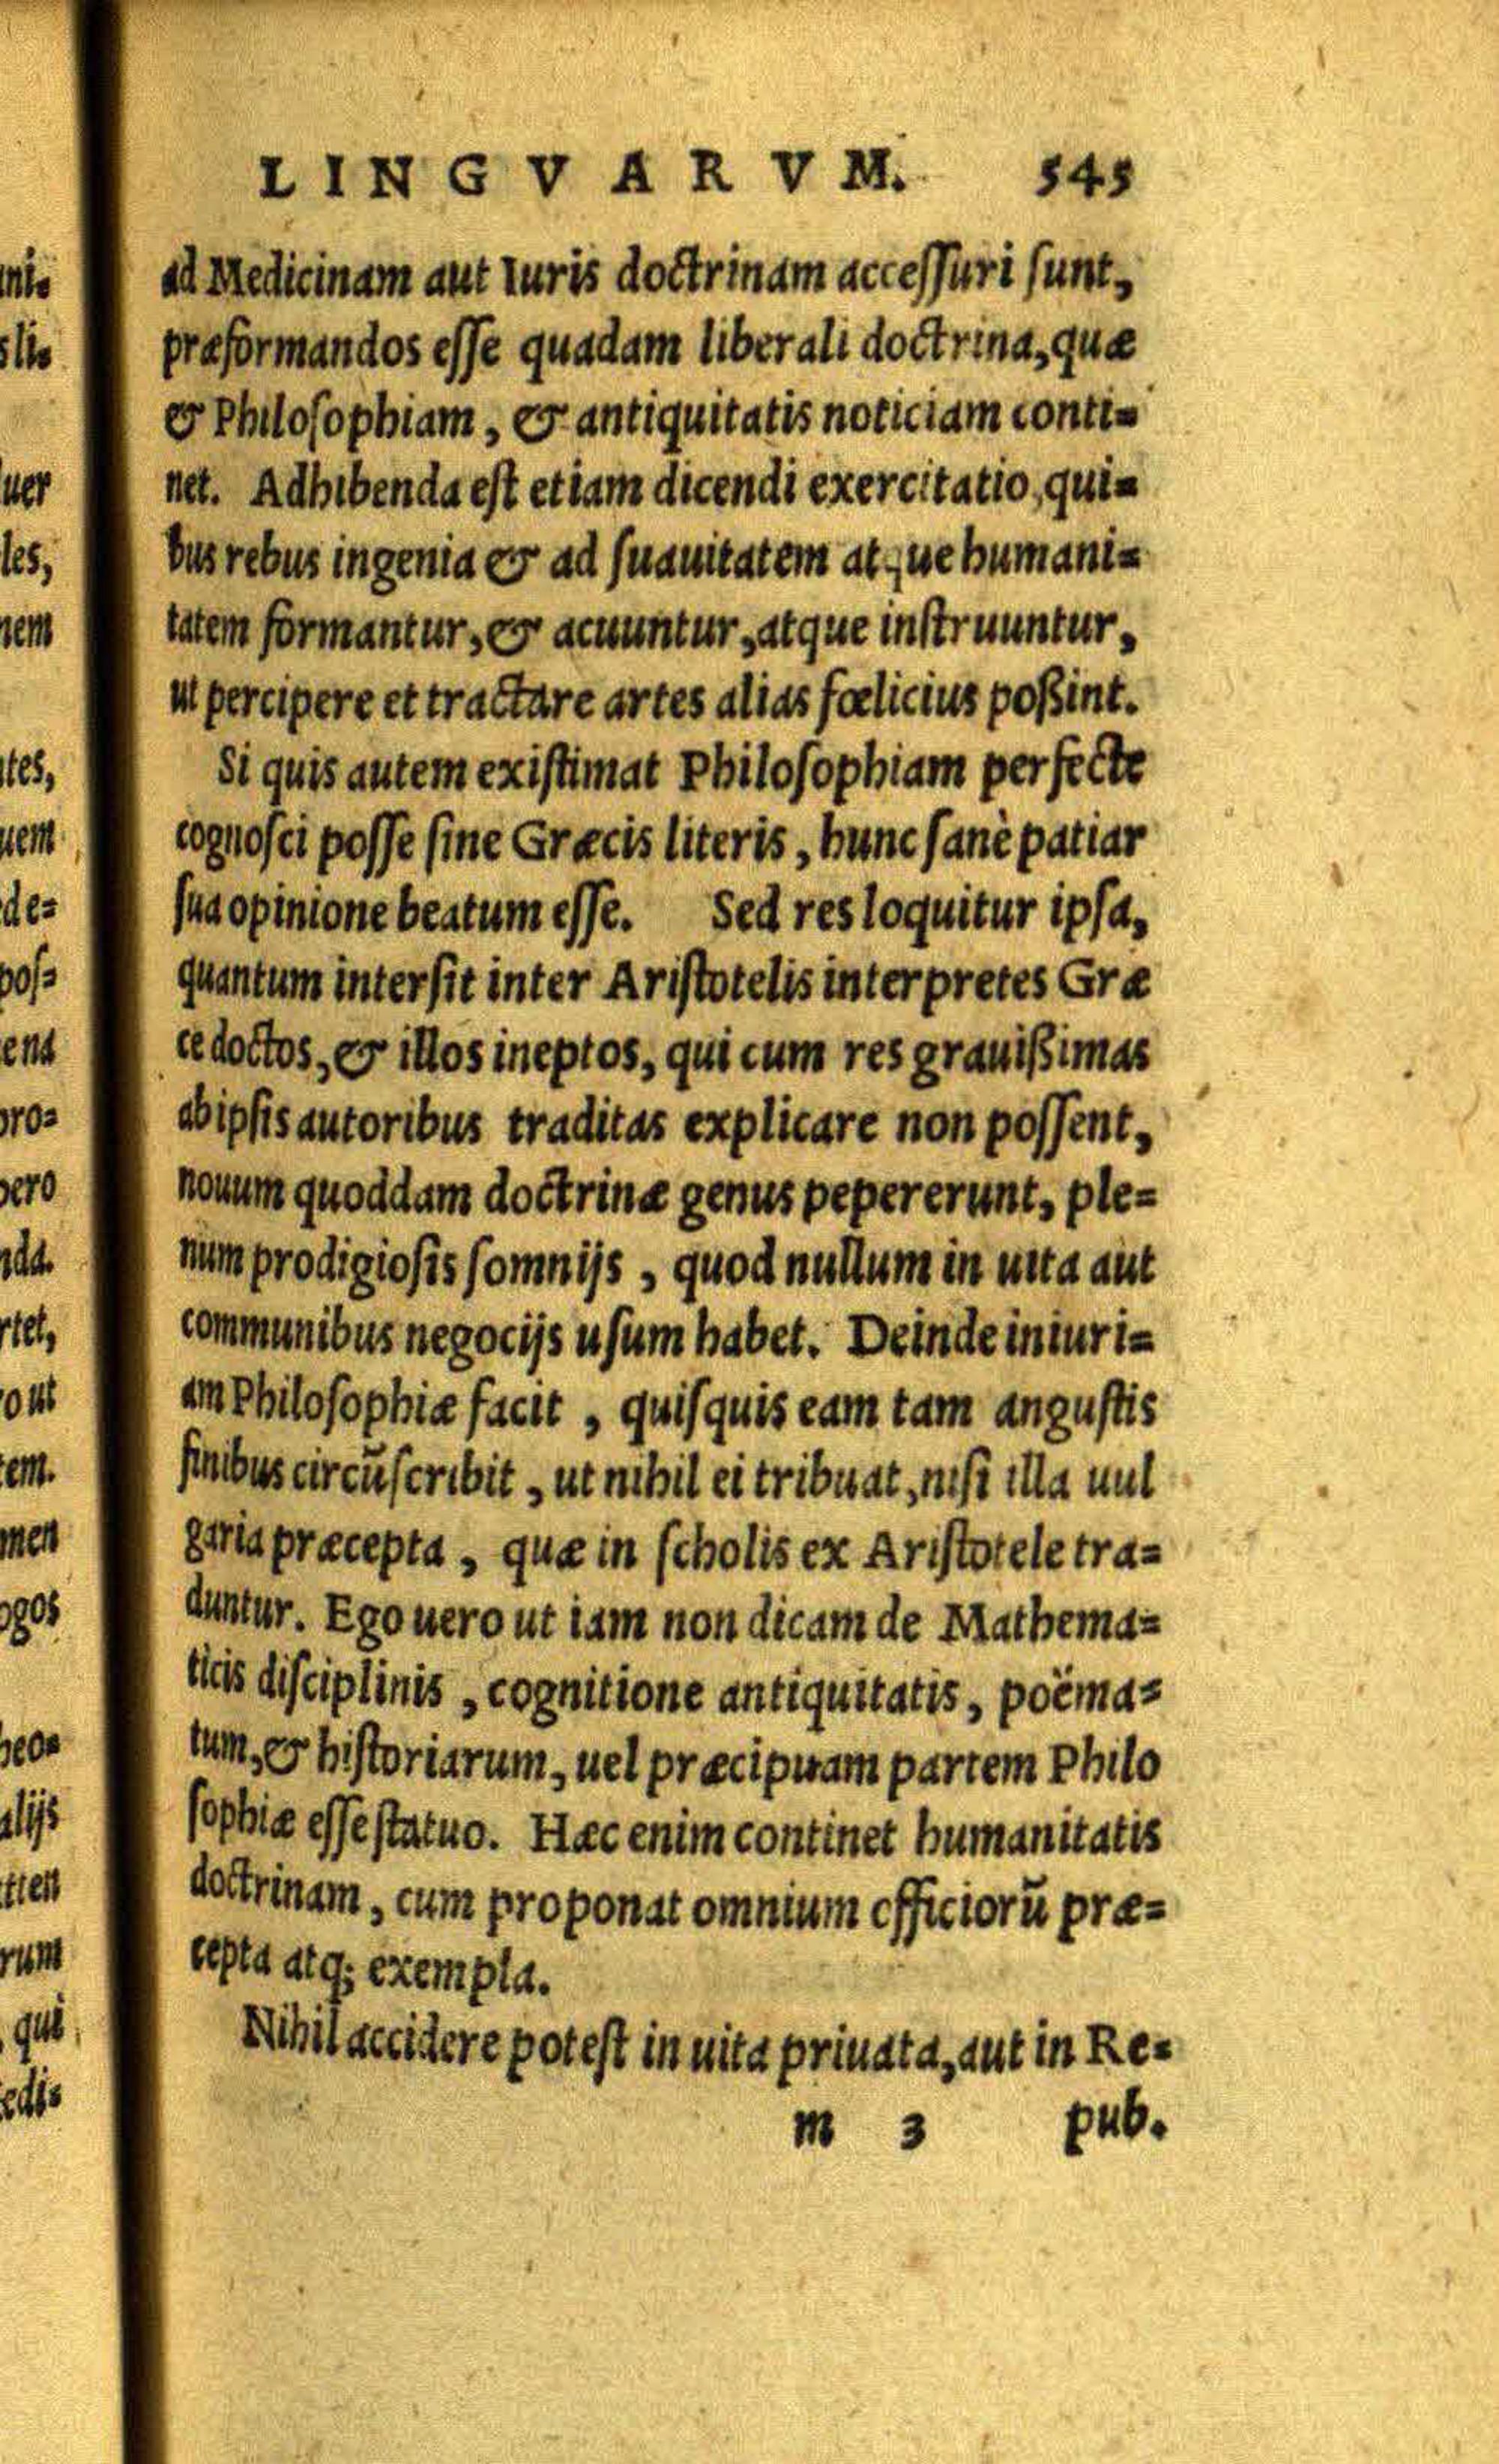 LINGVARVM. 545
ad Medicinam aut Iuris doctrinam accessuri sunt,
præformandos esse quadam liberali doctrina, quæ
& Philosophiam, & antiquitatis noticiam conti=
net. Adhibenda est etiam dicendi exercitatio, qui=
bus rebus ingenia & ad suauitatem atque humani=
tatem formantur, & acuuntur, atque instruuntur,
ut percipere et tractare artes alias fœlicius poßint.
Si quis autem existimat Philosophiam perfecte
cognosci posse sine Græcis literis, hunc sanè patiar
sua opinione beatum esse. Sed res loquitur ipsa,
quantum intersit inter Aristotelis interpretes Græ
ce doctos, & illos ineptos, qui cum res grauißimas
ab ipsis autoribus traditas explicare non possent,
nouum quoddam doctrinæ genus pepererunt, ple=
num prodigiosis somnijs, quod nullum in uita aut
communibus negocijs usum habet. Deinde iniuri=
am Philosophiæ facit, quisquis eam tam angustis
finibus circũscribit, ut nihil ei tribuat, nisi illa uul
garia præcepta, quæ in scholis ex Aristotele tra=
duntur. Ego uero ut iam non dicam de Mathema=
ticis disciplinis, cognitione antiquitatis, poëma=
tum, & historiarum, uel præcipuam partem Philo
sophiæ esse statuo. Hæc enim continet humanitatis
doctrinam, cum proponat omnium officiorũ præ=
cepta atq; exempla.
Nihil accidere potest in uita priuata, aut in Re=
m 3 pub.